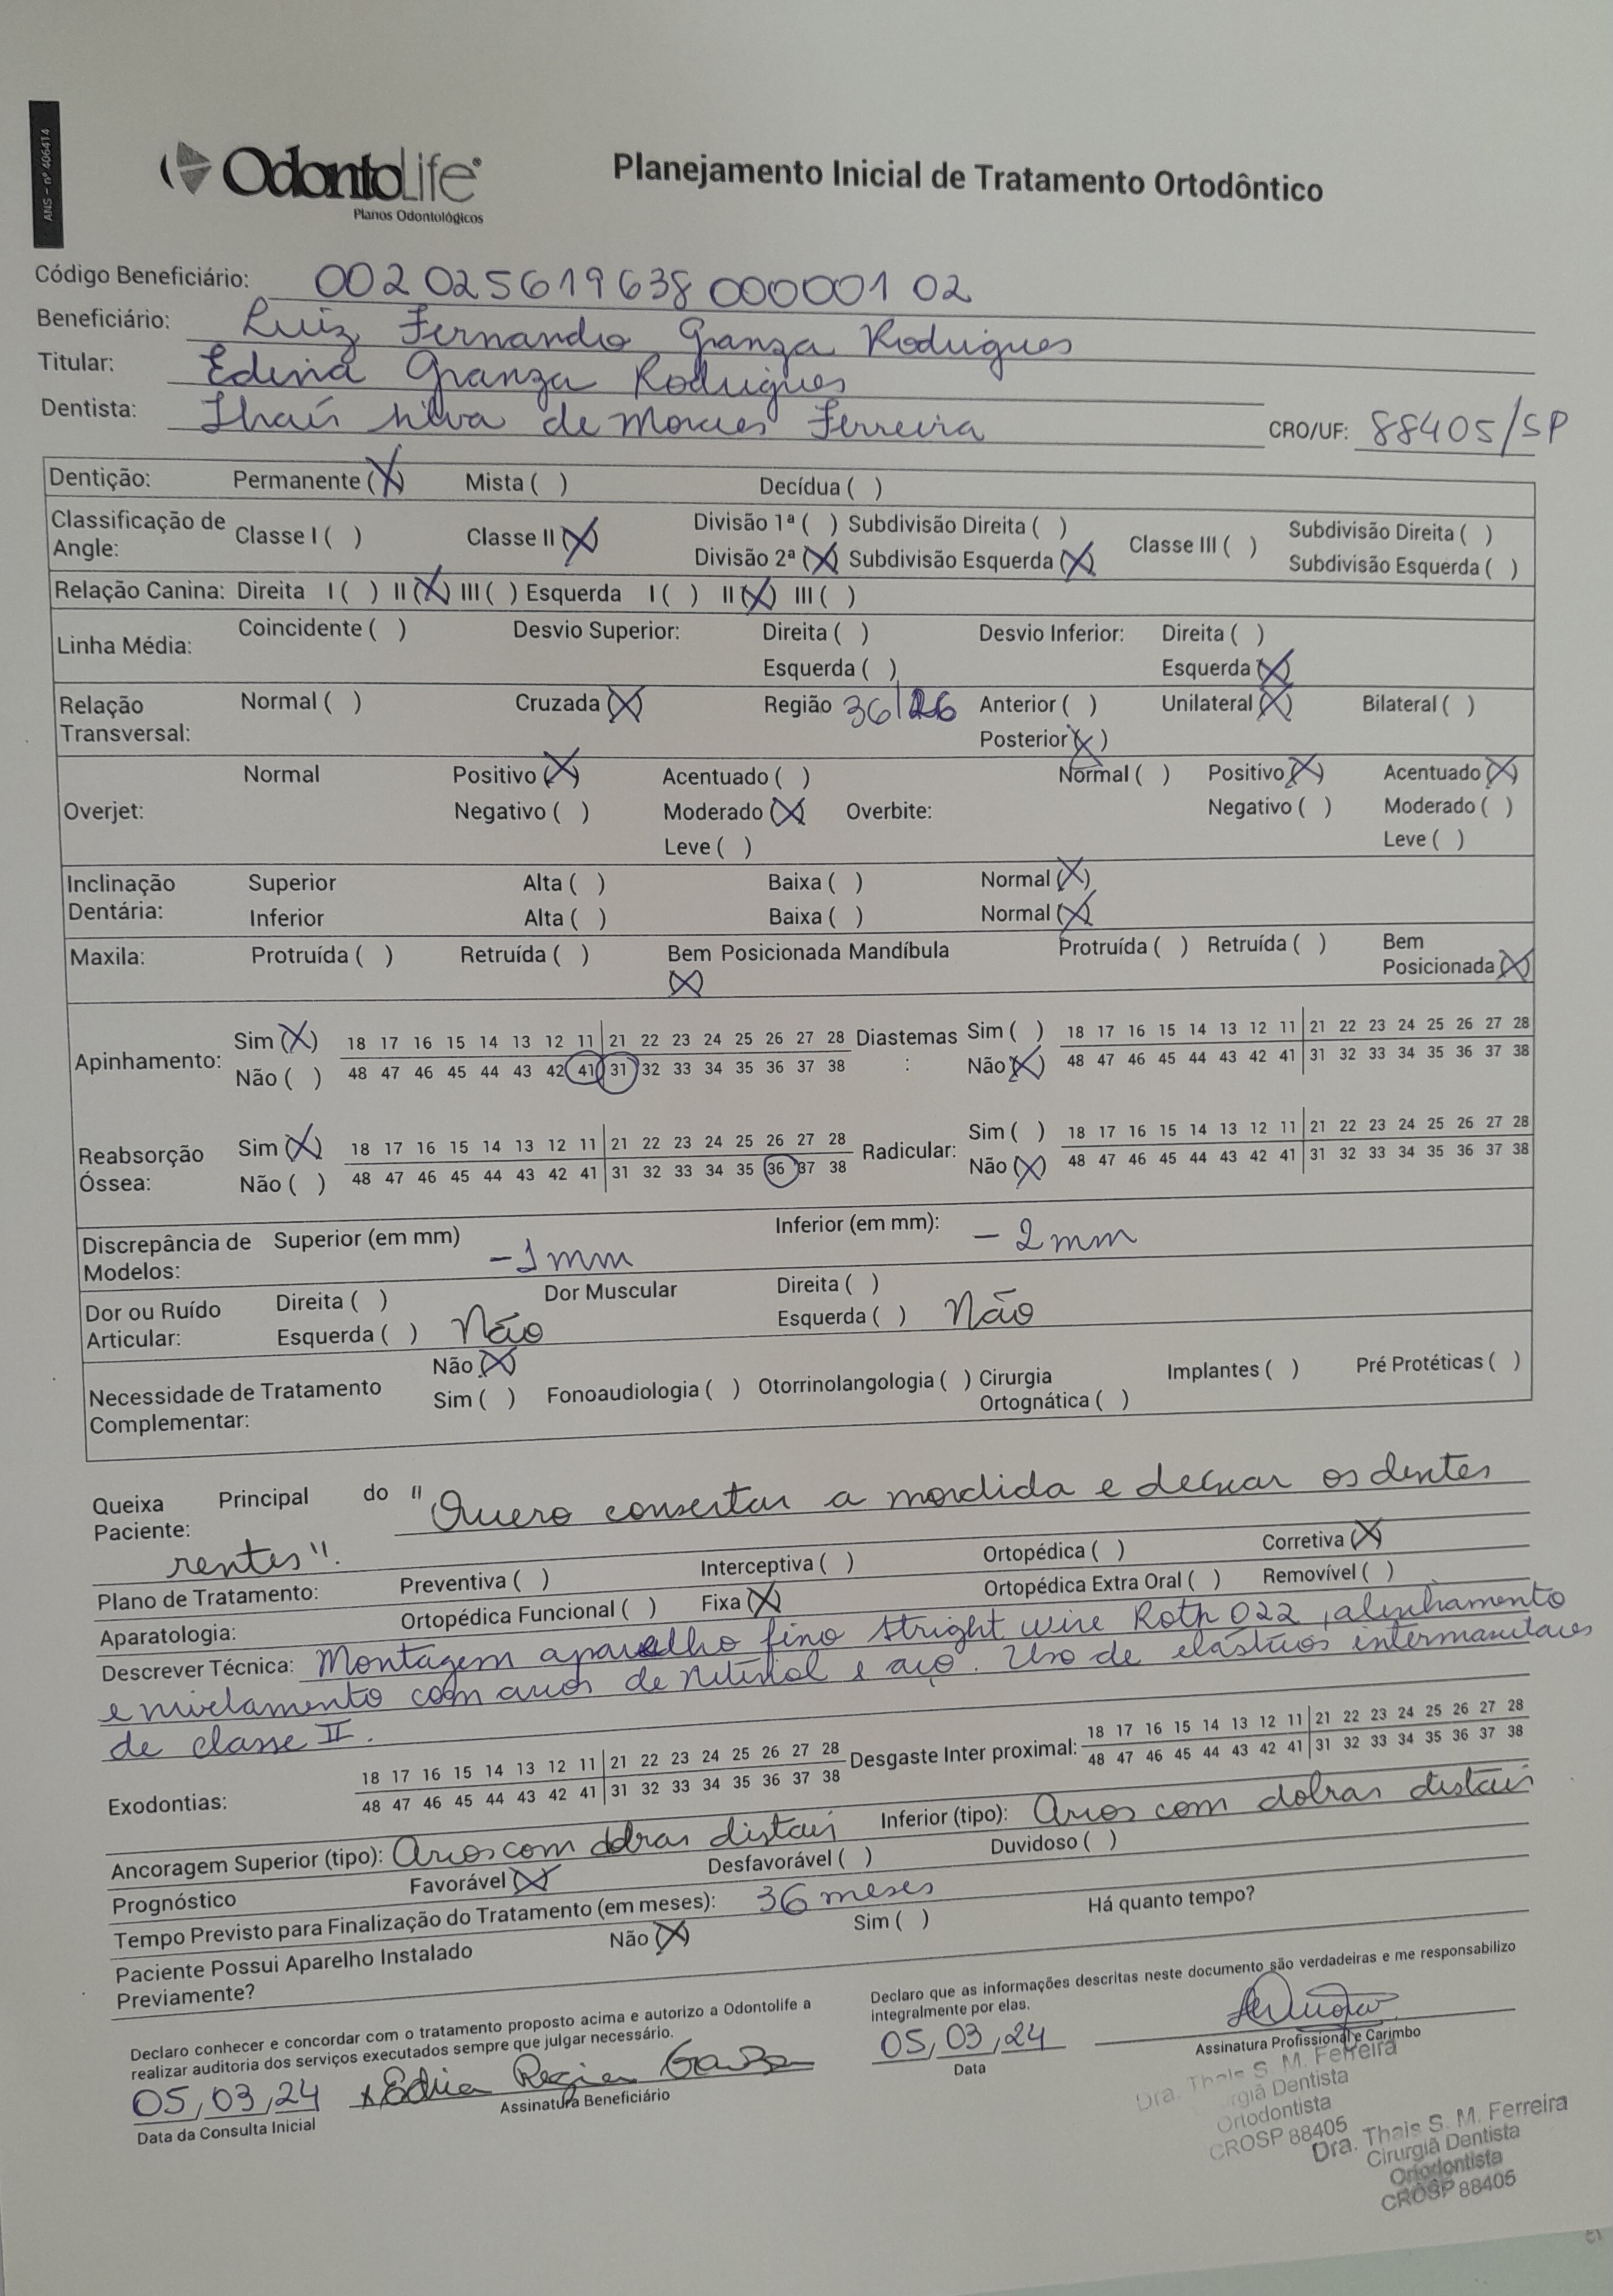 ANS - nº 406414
OdontoLife®
Planos Odontológicos
Planejamento Inicial de Tratamento Ortodôntico
Código Beneficiário: 002 025619638 000001 02
Beneficiário: Luiz Fernando Granza Rodrigues
Titular: Edina Granza Rodrigues
Dentista: Thaís Silva de Moraes Ferreira CRO/UF: 88405/SP
Dentição: Permanente (X) Mista ( ) Decídua ( )
Classificação de Angle: Classe I ( ) Classe II (X) Divisão 1ª ( ) Subdivisão Direita ( ) Classe III ( ) Subdivisão Direita ( )
Divisão 2ª (X) Subdivisão Esquerda (X) Subdivisão Esquerda ( )
Relação Canina: Direita I ( ) II (X) III ( ) Esquerda I ( ) II (X) III ( )
Linha Média: Coincidente ( ) Desvio Superior: Direita ( ) Desvio Inferior: Direita ( )
Esquerda ( ) Esquerda (X)
Relação Transversal: Normal ( ) Cruzada (X) Região 36|26 Anterior ( ) Unilateral (X) Bilateral ( )
Posterior (X)
Overjet: Normal Positivo (X) Acentuado ( ) Overbite: Normal ( ) Positivo (X) Acentuado (X)
Negativo ( ) Moderado (X) Negativo ( ) Moderado ( )
Leve ( ) Leve ( )
Inclinação Dentária: Superior Alta ( ) Baixa ( ) Normal (X)
Inferior Alta ( ) Baixa ( ) Normal (X)
Maxila: Protruída ( ) Retruída ( ) Bem Posicionada (X) Mandíbula Protruída ( ) Retruída ( ) Bem Posicionada (X)
Apinhamento: Sim (X) 18 17 16 15 14 13 12 11 21 22 23 24 25 26 27 28 Diastemas: Sim ( ) 18 17 16 15 14 13 12 11 21 22 23 24 25 26 27 28
Não ( ) 48 47 46 45 44 43 42 41 31 32 33 34 35 36 37 38 Não (X) 48 47 46 45 44 43 42 41 31 32 33 34 35 36 37 38
Reabsorção Óssea: Sim (X) 18 17 16 15 14 13 12 11 21 22 23 24 25 26 27 28 Radicular: Sim ( ) 18 17 16 15 14 13 12 11 21 22 23 24 25 26 27 28
Não ( ) 48 47 46 45 44 43 42 41 31 32 33 34 35 36 37 38 Não (X) 48 47 46 45 44 43 42 41 31 32 33 34 35 36 37 38
Discrepância de Modelos: Superior (em mm) -1mm Inferior (em mm): -2mm
Dor ou Ruído Articular: Direita ( ) Dor Muscular Direita ( )
Esquerda ( ) Não Esquerda ( ) Não
Necessidade de Tratamento Complementar: Não (X)
Sim ( ) Fonoaudiologia ( ) Otorrinolangologia ( ) Cirurgia Ortognática ( ) Implantes ( ) Pré Protéticas ( )
Queixa Principal do Paciente: "Quero consertar a mordida e deixar os dentes
rentes".
Plano de Tratamento: Preventiva ( ) Interceptiva ( ) Ortopédica ( ) Corretiva (X)
Aparatologia: Ortopédica Funcional ( ) Fixa (X) Ortopédica Extra Oral ( ) Removível ( )
Descrever Técnica: Montagem aparelho fixo Stright wire Roth 022, alinhamento
e nivelamento com arcos de nitinol e aço. Uso de elásticos intermaxilares
de classe II.
Exodontias: 18 17 16 15 14 13 12 11 21 22 23 24 25 26 27 28 Desgaste Inter proximal: 18 17 16 15 14 13 12 11 21 22 23 24 25 26 27 28
48 47 46 45 44 43 42 41 31 32 33 34 35 36 37 38 48 47 46 45 44 43 42 41 31 32 33 34 35 36 37 38
Ancoragem Superior (tipo): Arcos com dobras distais Inferior (tipo): Arcos com dobras distais
Prognóstico Favorável (X) Desfavorável ( ) Duvidoso ( )
Tempo Previsto para Finalização do Tratamento (em meses): 36 meses
Paciente Possui Aparelho Instalado Previamente? Não (X) Sim ( ) Há quanto tempo?
Declaro conhecer e concordar com o tratamento proposto acima e autorizo a Odontolife a
realizar auditoria dos serviços executados sempre que julgar necessário.
05/03/24 x Edina Regina
Data da Consulta Inicial Assinatura Beneficiário
Declaro que as informações descritas neste documento são verdadeiras e me responsabilizo
integralmente por elas.
05/03/24
Data Assinatura Profissional e Carimbo
Dra. Thais S. M. Ferreira
Cirurgiã Dentista
Ortodontista
CROSP 88405
Dra. Thais S. M. Ferreira
Cirurgiã Dentista
Ortodontista
CROSP 88405